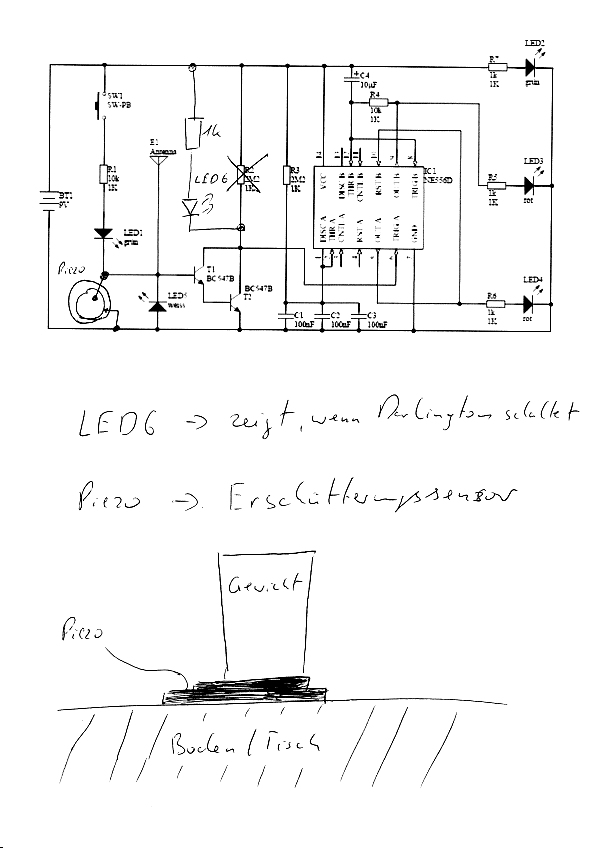 LED2
R7
1k
1K
grün
SW1
SW-PB
C4
10µF
R4
10k
1K
1k
E1
Antenne
R1
10k
1K
LED6
R2
2M2
1K
R3
2M2
1K
VCC
DISC B
THR B
CNTL B
RST B
OUT B
TRIG B
IC1
NE556D
DISC A
THR A
CNTL A
RST A
OUT A
TRIG A
GND
R5
1k
1K
LED3
rot
BT1
9V
LED1
grün
Piezo
T1
BC547B
BC547B
T2
LED5
weiss
C1
100nF
C2
100nF
C3
100nF
R6
1k
1K
LED4
rot
LED6 -> zeigt, wenn Darlington schaltet
Piezo -> Erschütterungssensor
Gewicht
Piezo
Boden / Tisch